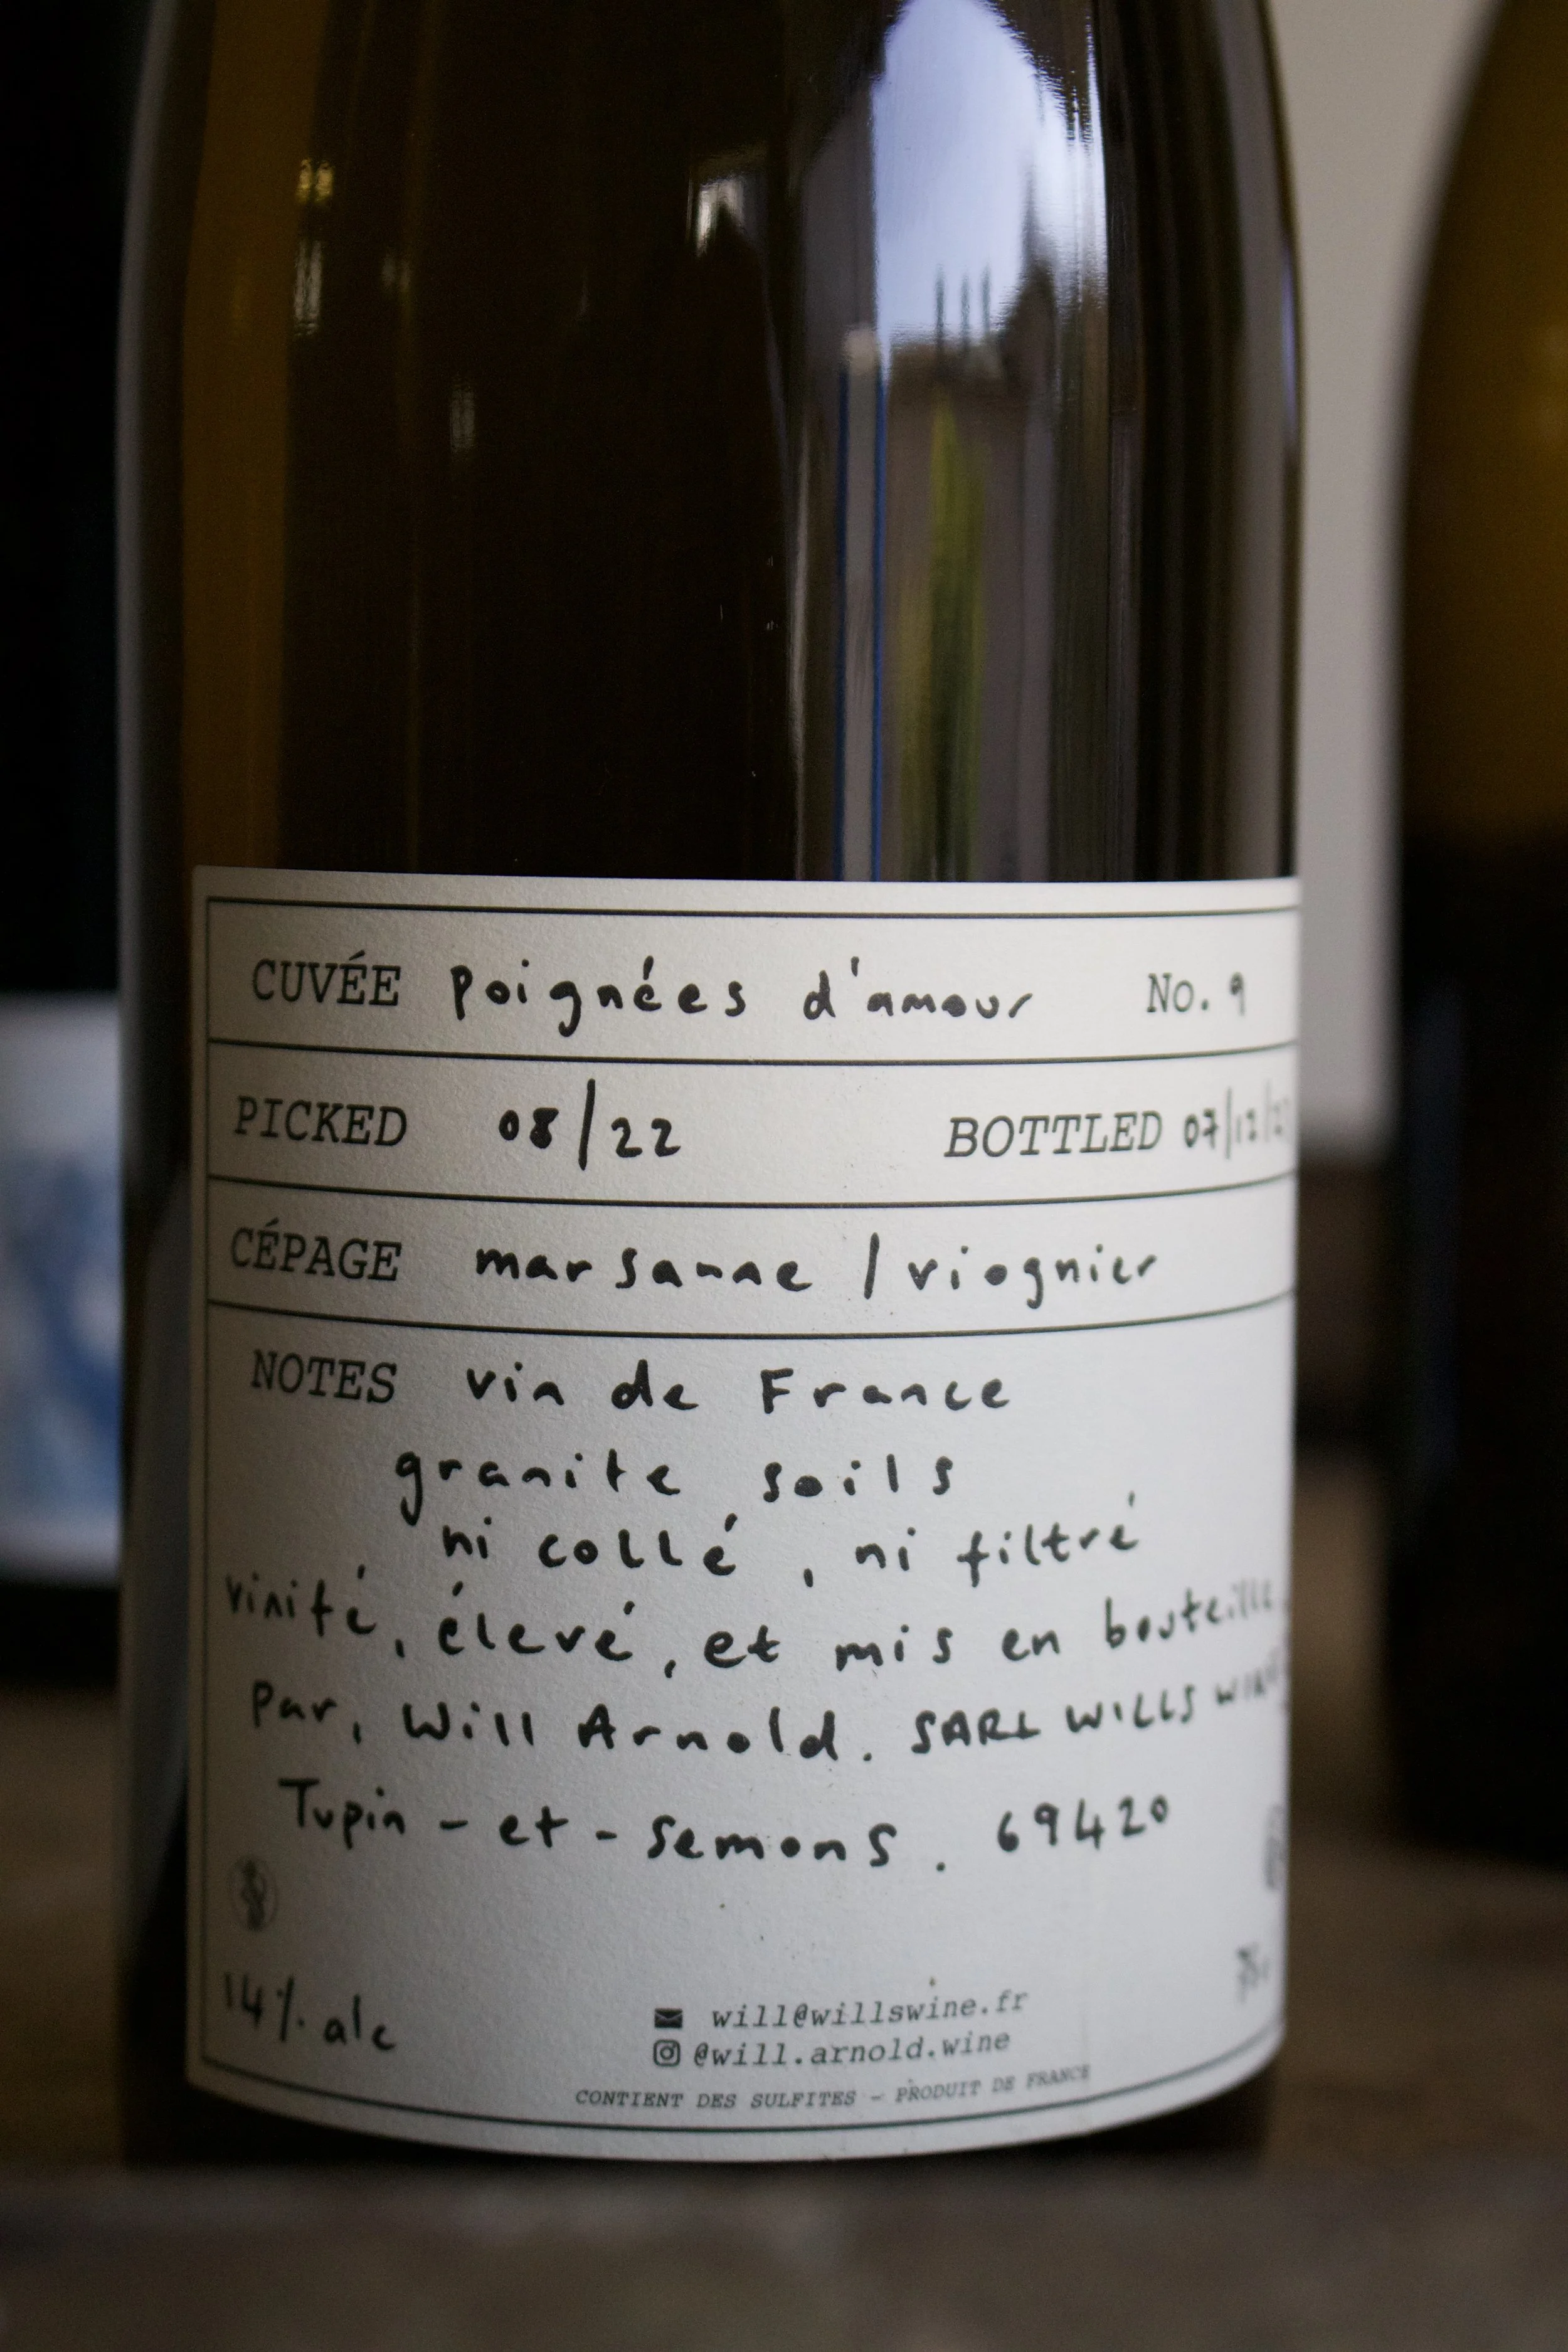 CUVÉE poignées d'amour No. 9
PICKED 08/22 BOTTLED
CÉPAGE marsanne / viognier
NOTES vin de France
granite soils
ni collé, ni filtré
vinifé, élevé, et mis en bouteille
par, Will Arnold. SARL WILLS
Tupin-et-semons. 69420
14% alc
will@willswine.fr
@will.arnold.wine
CONTIENT DES SULFITES - PRODUIT DE FRANCE